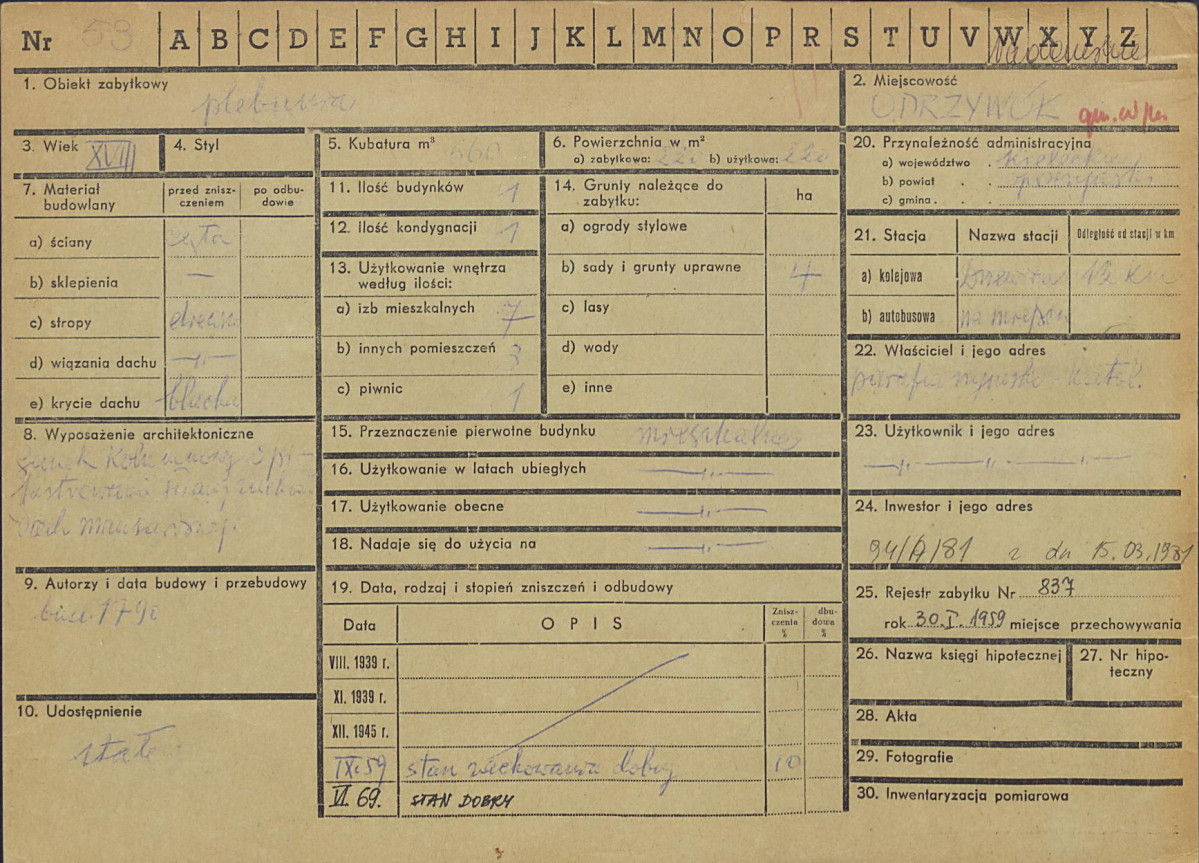 Nr 53 A B C D E F G H I J K L M N O P R S T U V W X Y Z
1. Obiekt zabytkowy
plebania
2. Miejscowość
ODRZYWÓŁ
3. Wiek XVIII
4. Styl
5. Kubatura m³ 660
6. Powierzchnia w m²
a) zabytkowa: 220 b) użytkowa: 220
7. Materiał budowlany
przed zniszczeniem
po odbudowie
a) ściany cegła
b) sklepienia —
c) stropy drewn
d) wiązania dachu —„—
e) krycie dachu blacha
8. Wyposażenie architektoniczne
ganek kolumnowy
9. Autorzy i data budowy i przebudowy
1790
10. Udostępnienie
stałe
11. Ilość budynków 1
12. Ilość kondygnacji 1
13. Użytkowanie wnętrza
według ilości:
a) izb mieszkalnych 7
b) innych pomieszczeń 3
c) piwnic 1
14. Grunty należące do
zabytku:
ha
a) ogrody stylowe
b) sady i grunty uprawne 4
c) lasy
d) wody
e) inne
15. Przeznaczenie pierwotne budynku mieszkalne
16. Użytkowanie w latach ubiegłych —„—
17. Użytkowanie obecne —„—
18. Nadaje się do użycia na —„—
19. Data, rodzaj i stopień zniszczeń i odbudowy
Data
OPIS
Zniszczenia %
dbudowa %
VIII. 1939 r.
XI. 1939 r.
XII. 1945 r.
IX.59 stan zachowania dobry 10
VI. 69. STAN DOBRY
20. Przynależność administracyjna
a) województwo . kieleckie
b) powiat . .
c) gmina . .
21. Stacja
Nazwa stacji
Odległość od stacji w km
a) kolejowa 12 km
b) autobusowa na miejscu
22. Właściciel i jego adres
parafia rzymsko-katol.
23. Użytkownik i jego adres
—„— —„—
24. Inwestor i jego adres
94/A/81 z dn 15.03.1981
25. Rejestr zabytku Nr 837
rok 30.I.1959 miejsce przechowywania
26. Nazwa księgi hipotecznej
27. Nr hipoteczny
28. Akta
29. Fotografie
30. Inwentaryzacja pomiarowa